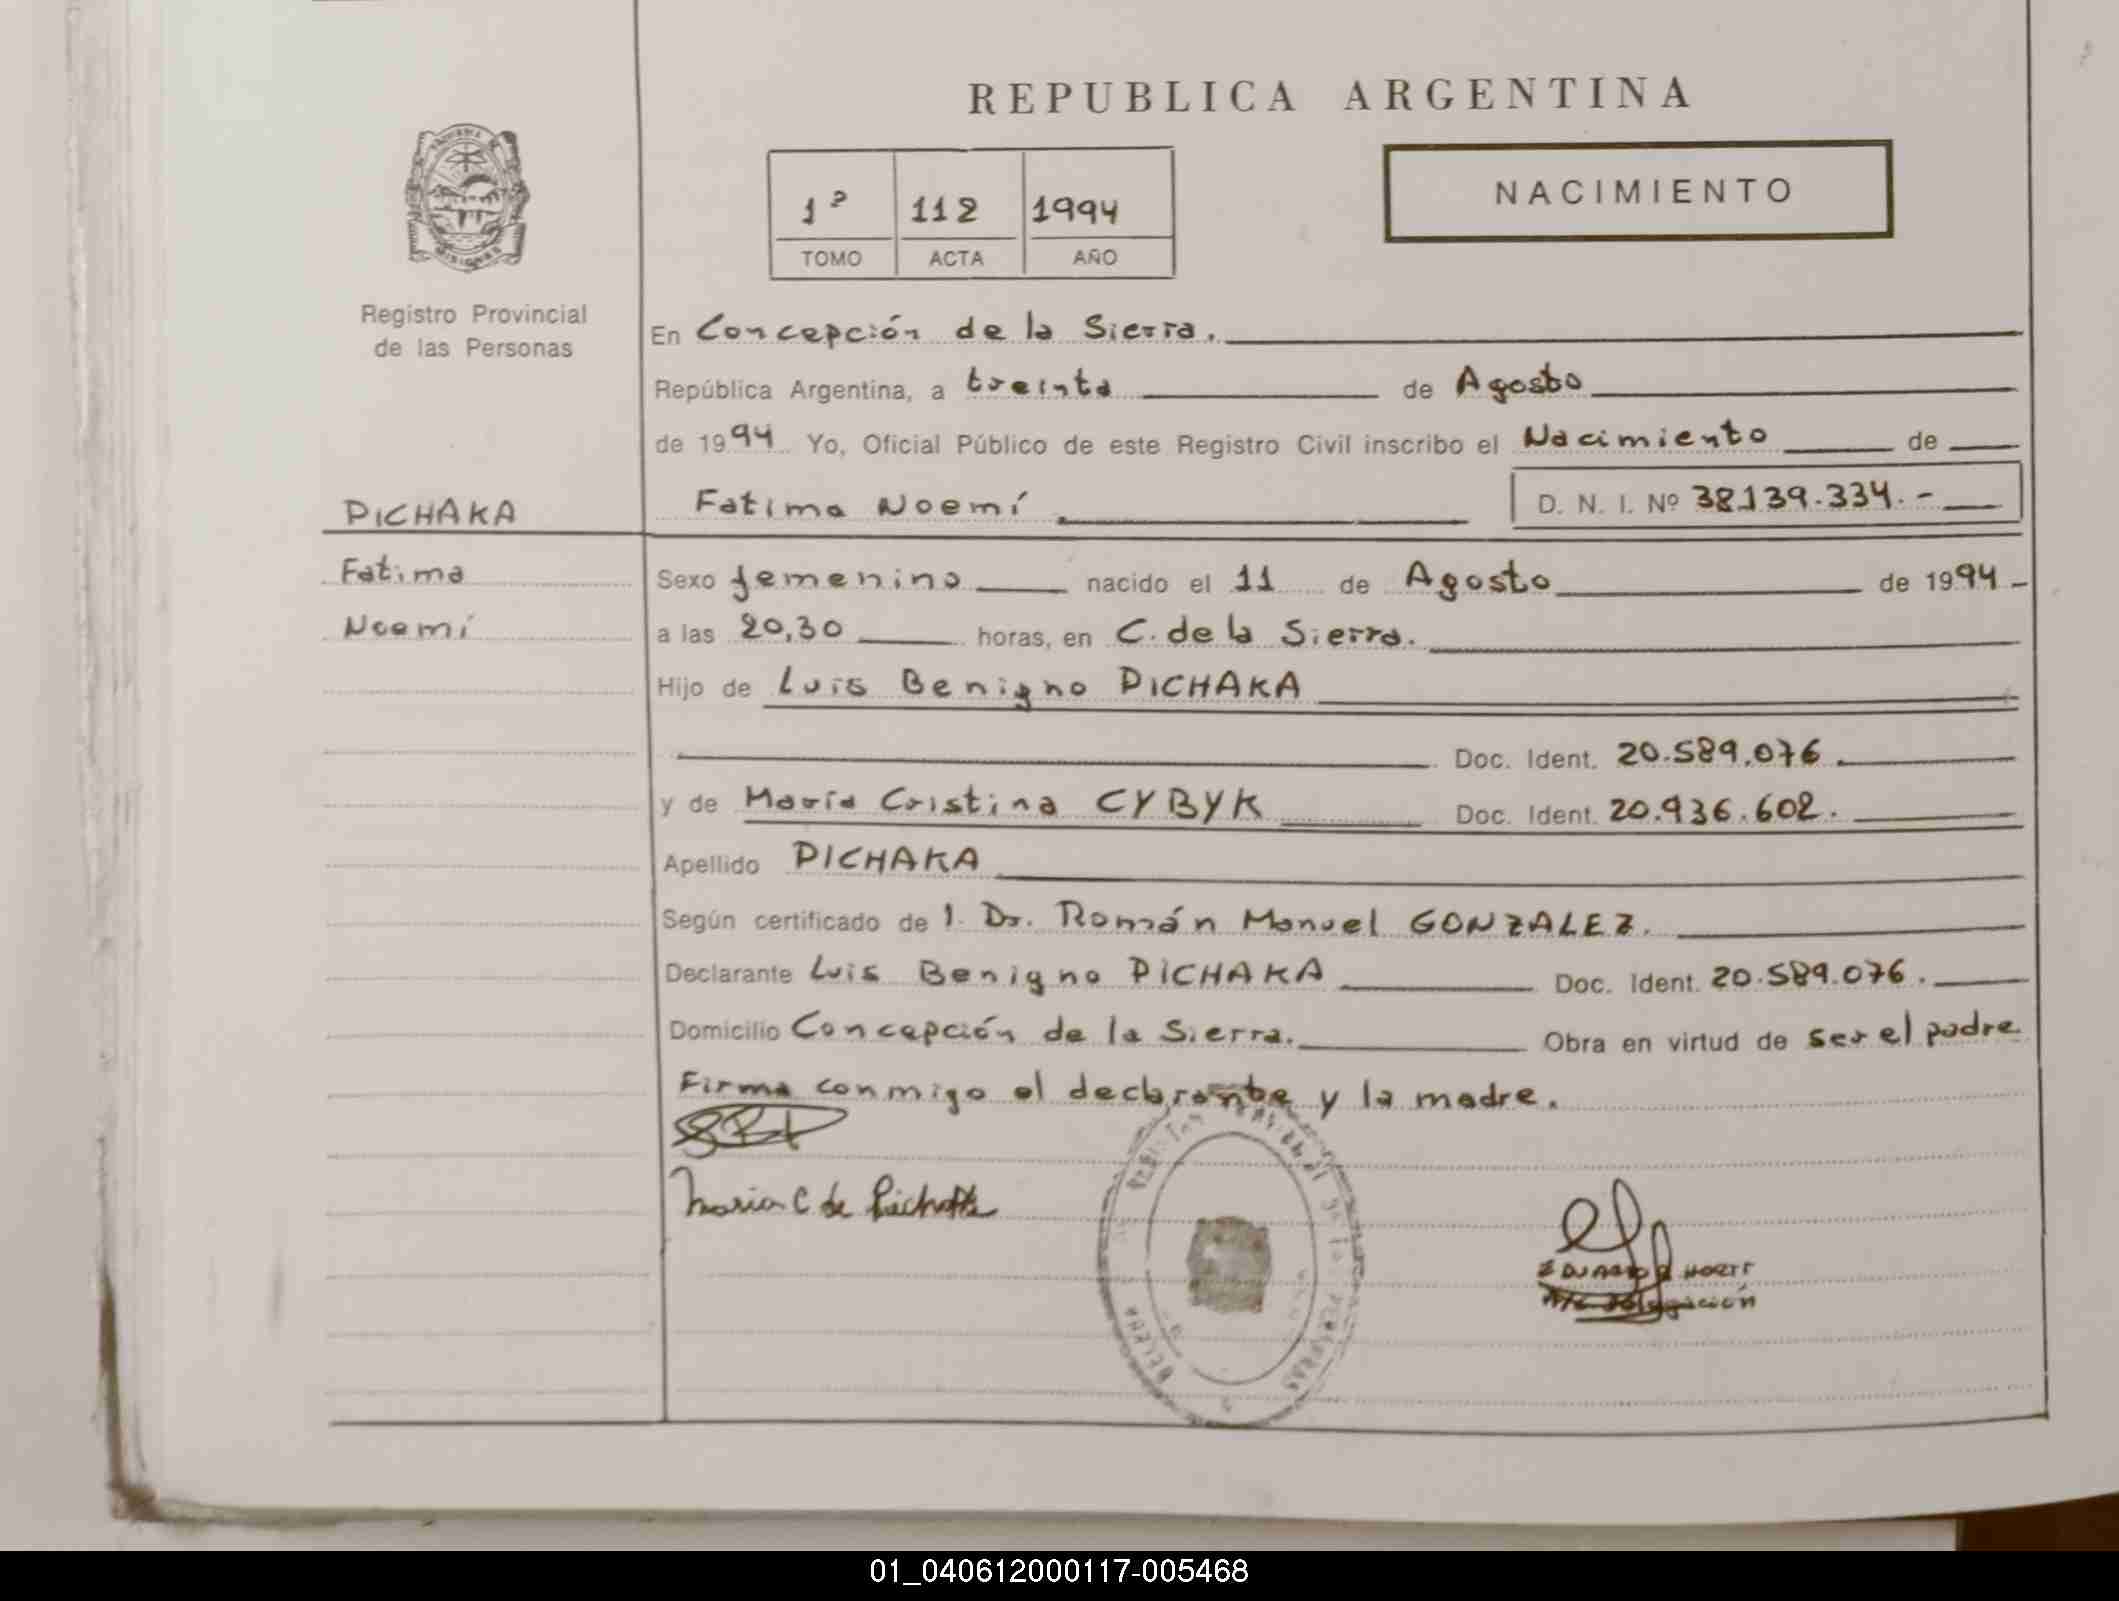 REPUBLICA ARGENTINA
NACIMIENTO
1º 112 1994
TOMO ACTA AÑO
Registro Provincial
de las Personas
En Concepción de la Sierra.
República Argentina, a treinta de Agosto
de 1994 Yo, Oficial Público de este Registro Civil inscribo el Nacimiento de
PICHAKA
Fatima Noemí D. N. I. Nº 38.139.334.-
Fatima
Sexo femenino nacido el 11 de Agosto de 1994
Noemí
a las 20,30 horas, en C. de la Sierra.
Hijo de Luis Benigno PICHAKA
Doc. Ident. 20.589.076
y de María Cristina CYBYK Doc. Ident. 20.936.602.
Apellido PICHAKA
Según certificado de l. Dr. Román Manuel GONZALEZ.
Declarante Luis Benigno PICHAKA Doc. Ident. 20.589.076.
Domicilio Concepción de la Sierra. Obra en virtud de ser el padre
Firma conmigo el declarante y la madre.
Maria C de
EDUARDO
Delegación
01_040612000117-005468